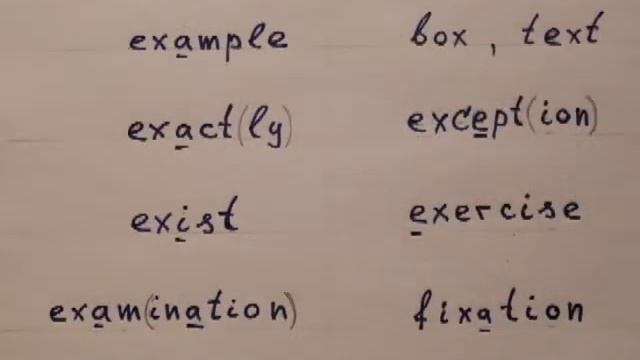 example box, text
exact(ly) except(ion)
exist exercise
exam(ination) fixation